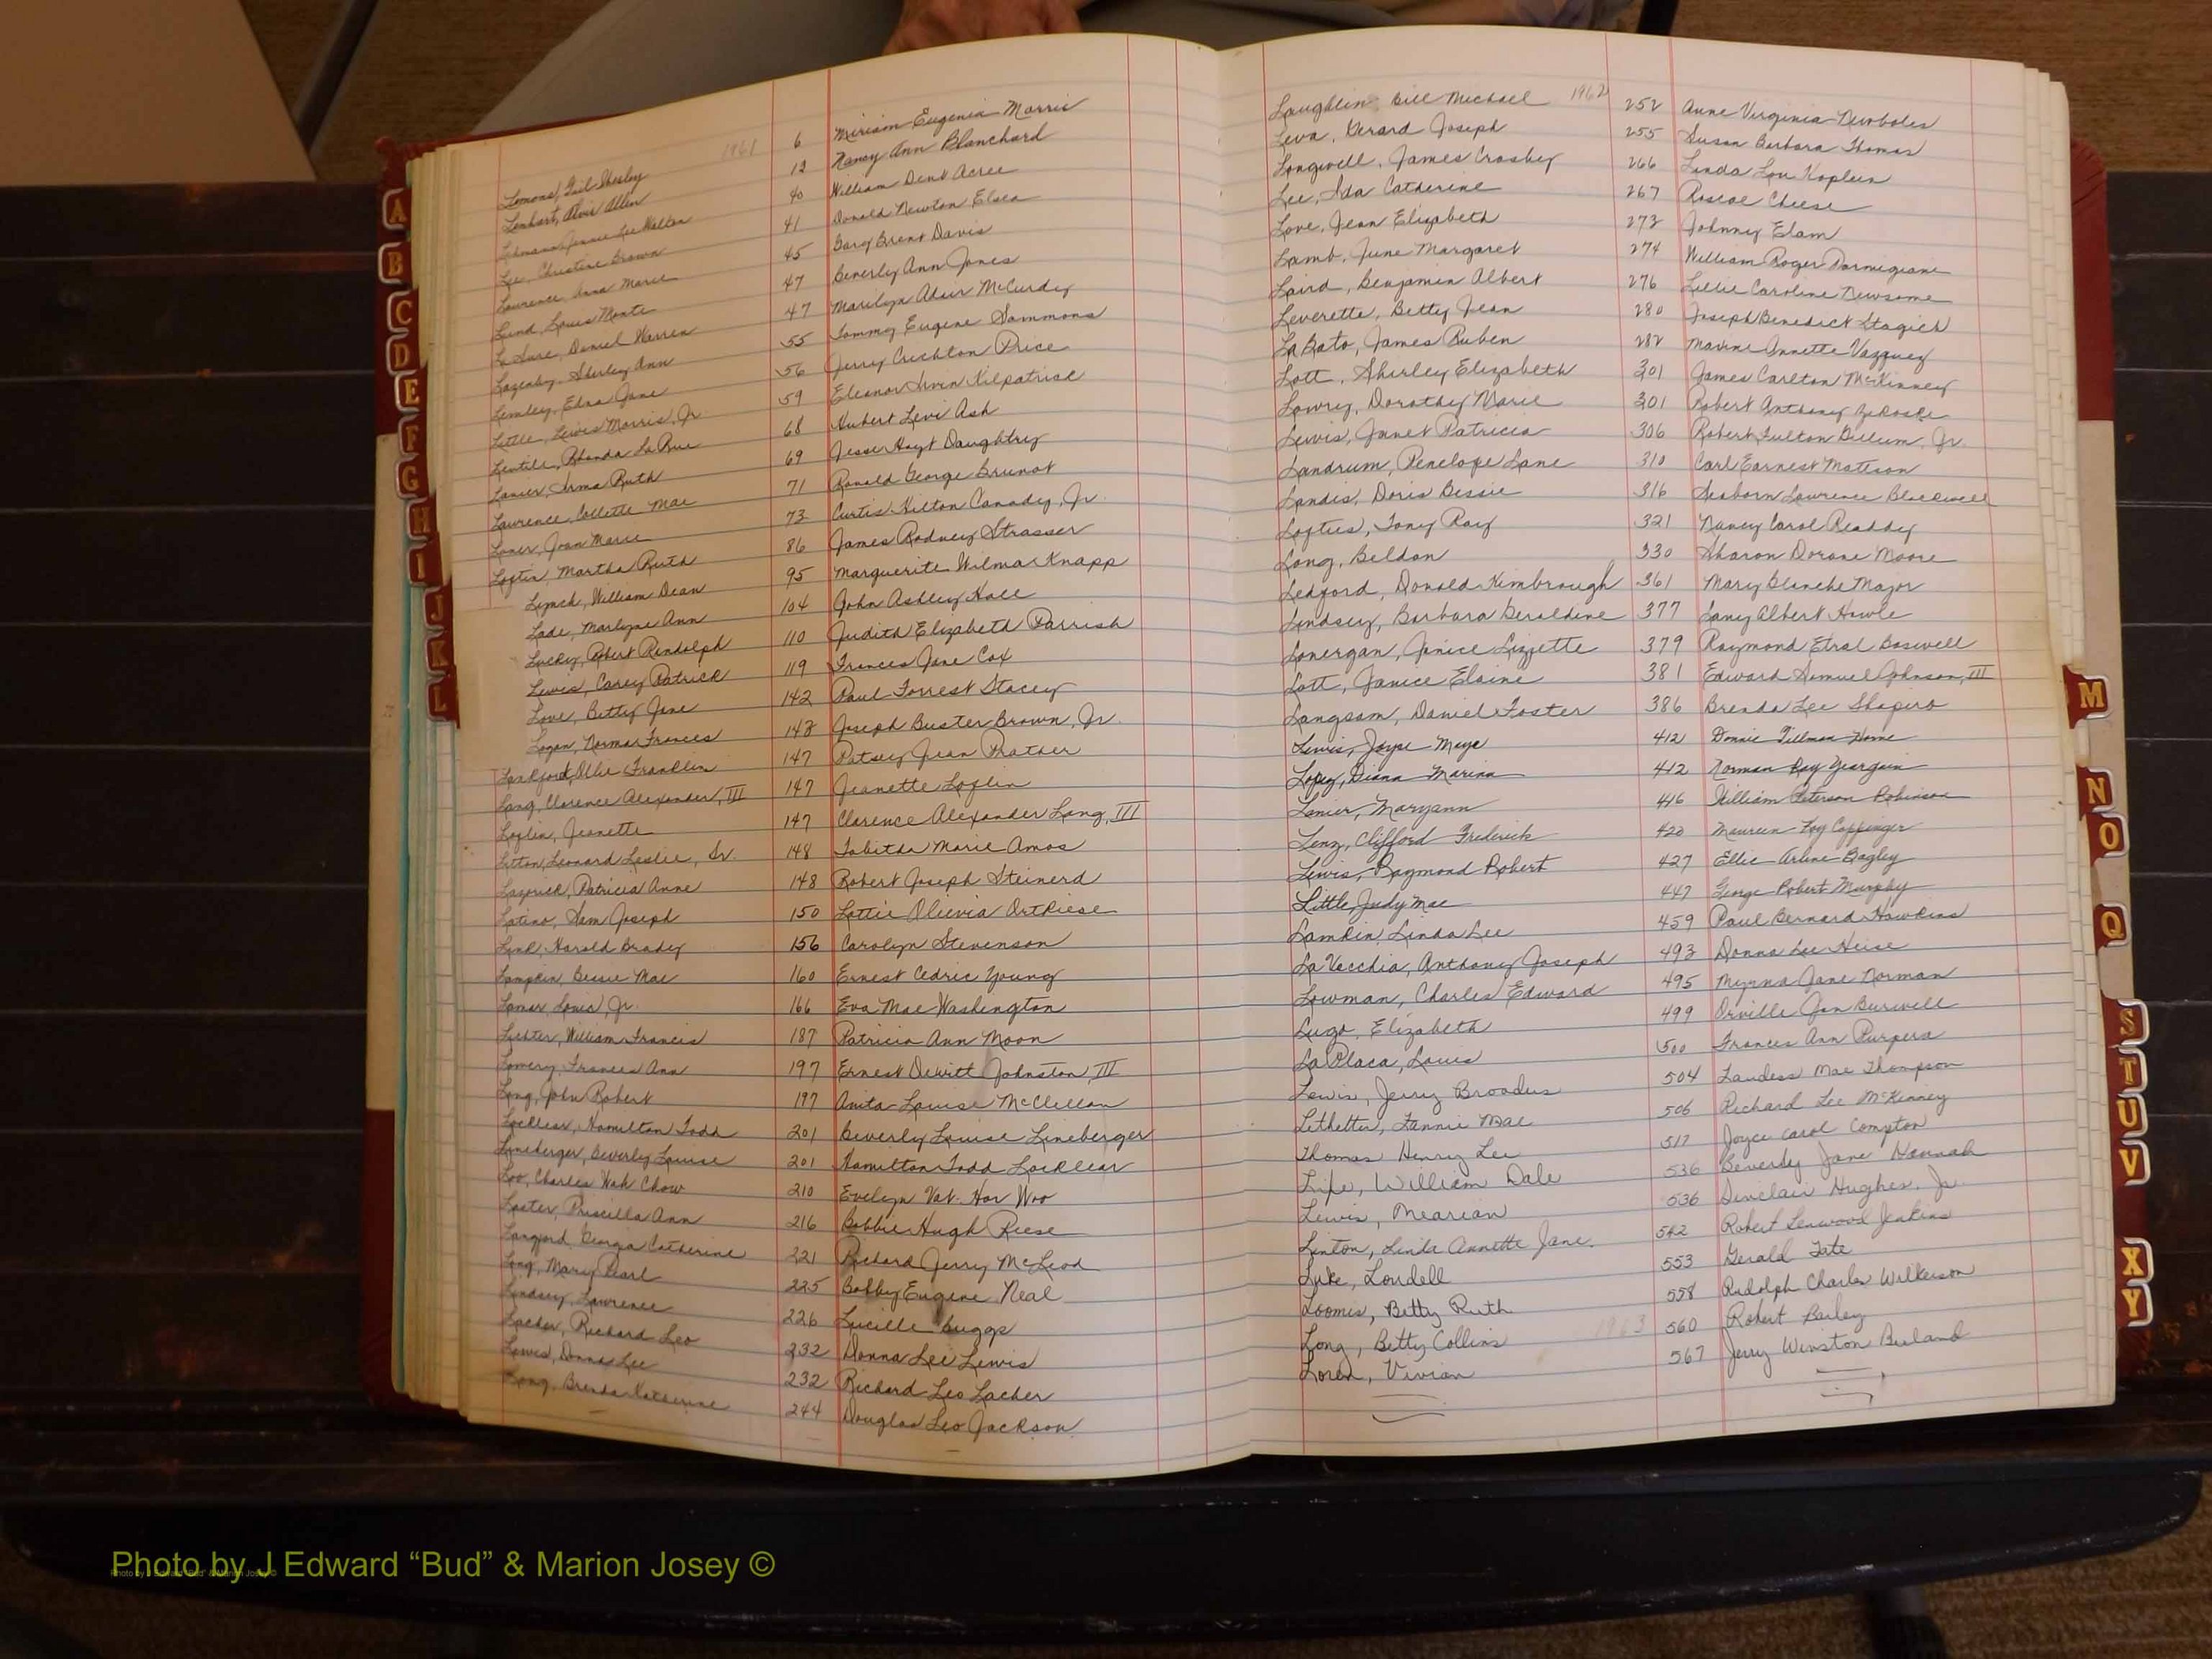 1961
Lemons, Gail Shesley 6 Miriam Eugenia Morris
Lenhart, Alvis Allen 12 Nancy Ann Blanchard
Lehmann, Jennie Lee Walton 40 William Dent Acree
Lee, Christine Brown 41 Donald Newton Elsea
Lawrence, Anna Marie 45 Gary Brent Davis
Lund, Louis Monte 47 Beverly Ann Jones
LeSure, Daniel Warren 47 Marilyn Adair McCurdy
Lazenby, Shirley Ann 55 Tommy Eugene Sammons
Lemley, Edna Jane 56 Jerry Crichton Price
Little, Lewis Morris, Jr. 59 Eleanor Irvin Kilpatrick
Rhonda LaRue 68 Hubert Levi Ash
Lanier, Irma Ruth 69 Jesse Hoyt Daughtry
Laurence, Collette Mae 71 Ronald George Brunot
Loner, Joan Marie 73 Curtis Hilton Canady, Jr.
Loftin, Martha Ruth 86 James Rodney Strasser
Lynch, William Dean 95 Marguerite Wilma Knapp
Lade, Marlyne Ann 104 John Ashley Hall
Luckey, Robert Randolph 110 Judith Elizabeth Parrish
Lewis, Carey Patrick 119 Frances Jane Cox
Love, Betty Jane 142 Paul Forrest Stacey
Logan, Norma Frances 143 Joseph Buster Brown, Jr.
Lankford, Ollie Franklin 147 Patsey Jean Prather
Lang, Clarence Alexander, III 147 Jeanette Loflin
Loflin, Jeanette 147 Clarence Alexander Lang, III
Litton, Leonard Leslie, Sr. 148 Tabitha Marie Amos
Lazorick, Patricia Anne 148 Robert Joseph Steinerd
Latino, Sam Joseph 150 Lottie Olievia Ortkiese
Link, Harold Bradey 156 Carolyn Stevenson
Lampkin, Bessie Mae 160 Ernest Cedric Young
Lamar, Louis, Jr. 166 Eva Mae Washington
Lichter, William Francis 187 Patricia Ann Moon
Lowery, Frances Ann 197 Ernest Dewitt Johnston, III
Long, John Robert 197 Anita Louise McClellan
Locklear, Hamilton Todd 201 Beverly Louise Lineberger
Lineberger, Beverly Louise 201 Hamilton Todd Locklear
Loo, Charles Wah Chow 210 Evelyn Yat Hor Woo
Laster, Priscilla Ann 216 Bobbie Hugh Reese
Langford, Georgia Catherine 221 Richard Jerry McLeod
Long, Mary Pearl 225 Bobby Eugene Neal
Lindsey, Lawrence 226 Lucille Buggs
Lacher, Richard Leo 232 Donna Lee Lewis
Lewis, Donna Lee 232 Richard Leo Lacher
Long, Brenda Katherine 244 Douglas Leo Jackson
Laughlin, Bill Michael 1962 252 Anne Virginia Newbolès
Leva, Gerard Joseph 255 Susan Barbara Thomas
Longwell, James Crosby 266 Linda Lou Koplein
Lee, Ida Catherine 267 Roscoe Cheese
Love, Jean Elizabeth 273 Johnny Elam
Lamb, June Margaret 274 William Roger Parmigiane
Laird, Benjamin Albert 276 Lillie Caroline Newsome
Leverette, Betty Jean 280 Joseph Benedict Stagich
LaBato, James Ruben 282 Maxine Annette Vazquez
Lott, Shirley Elizabeth 301 James Carlton McKinney
Lowry, Dorothy Marie 301 Robert Anthony
Lewis, Janet Patricia 306 Robert Fulton Dillum, Jr.
Landrum, Penelope Lane 310 Carl Earnest Matteson
Landis, Doris Bessie 316 Seaborn Lawrence Blackwell
Lofties, Tony Ray 321 Nancy Carol Readdy
Long, Beldon 330 Sharon Dorane Moore
Ledford, Donald Kimbrough 361 Mary Blanche Major
Lindsey, Barbara Geraldine 377 Laney Albert Howle
Lonergan, Janice Lizzette 379 Raymond Etral Boswell
Lott, Janice Elaine 381 Edward Samuel Johnson, III
Langsam, Daniel Foster 386 Brenda Lee Shapiro
Lewis, Joyce Maye 412 Donnie Tillman Horne
Lopez, Diana Marina 412 Norman Ray Yeargain
Lanier, Maryann 416 William Peterson Robinson
Lenz, Clifford Frederick 420 Maureen Foy Coppinger
Lewis, Raymond Robert 427 Ellie Arline Bagley
Little, Judy Mae 447 George Robert Murphy
Lamkin, Linda Lee 459 Paul Bernard Hawkins
LaVecchia, Anthony Joseph 493 Donna Lee Heise
Lowman, Charles Edward 495 Myrna Jane Norman
Lugo, Elizabeth 499 Orville Jon Burwell
LaPlaca, Louis 500 Frances Ann Purpera
Lewis, Jerry Broadus 504 Landess Mae Thompson
Lethetter, Fannie Mae 506 Richard Lee McKinney
Thomas Henry Lee 517 Joyce Carol Compton
Lipe, William Dale 536 Beverly Jane Hannah
Lewis, Mearian 536 Sinclair Hughes, Jr.
Linton, Linda Annette Jane 542 Robert Lenwood Jenkins
Luke, Londell 553 Gerald Tate
Loomis, Betty Ruth 558 Rudolph Charles Wilkerson
Long, Betty Collins 1963 560 Robert Barley
Loren, Vivian 567 Jerry Winston Beeland
A
B
C
D
E
F
G
H
I
J
K
L
M
N
O
Q
S
T
U
V
X
Y
Photo by J Edward “Bud” & Marion Josey ©
Photo by J Edward “Bud” & Marion Josey ©